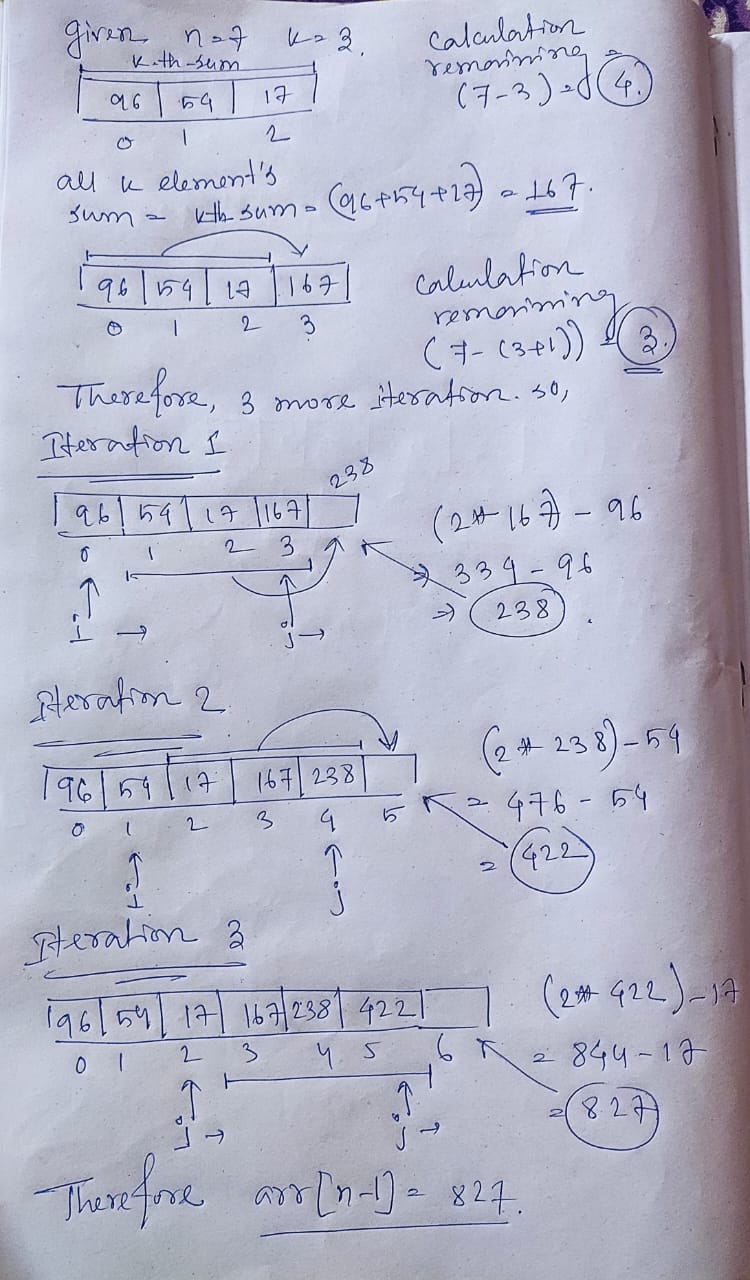 given n=7 k=3.
calculation
remaining =
(7-3) = 4.
k-th-sum
96 54 17
0 1 2
all k element's
sum = kth sum = (96+54+17) = 167.
96 54 17 167
0 1 2 3
calculation
remaining
(7-(3+1)) = 3.
Therefore, 3 more iteration. so,
Iteration 1
238
96 54 17 167
0 1 2 3
i → j →
(2* 167) - 96
⇒ 334 - 96
⇒ 238.
Iteration 2
96 54 17 167 238
0 1 2 3 4 5
i j
(2* 238) - 54
= 476 - 54
= 422
Iteration 3
96 54 17 167 238 422
0 1 2 3 4 5 6
i → j →
(2* 422) - 17
= 844 - 17
= 827
Therefore arr[n-1] = 827.